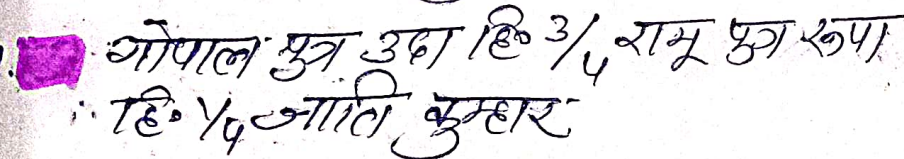 गोपाल पुत्र उदा हि॰ 3/4 रामू पुत्र रूपा
हि॰ 1/4 जाति कुम्हार